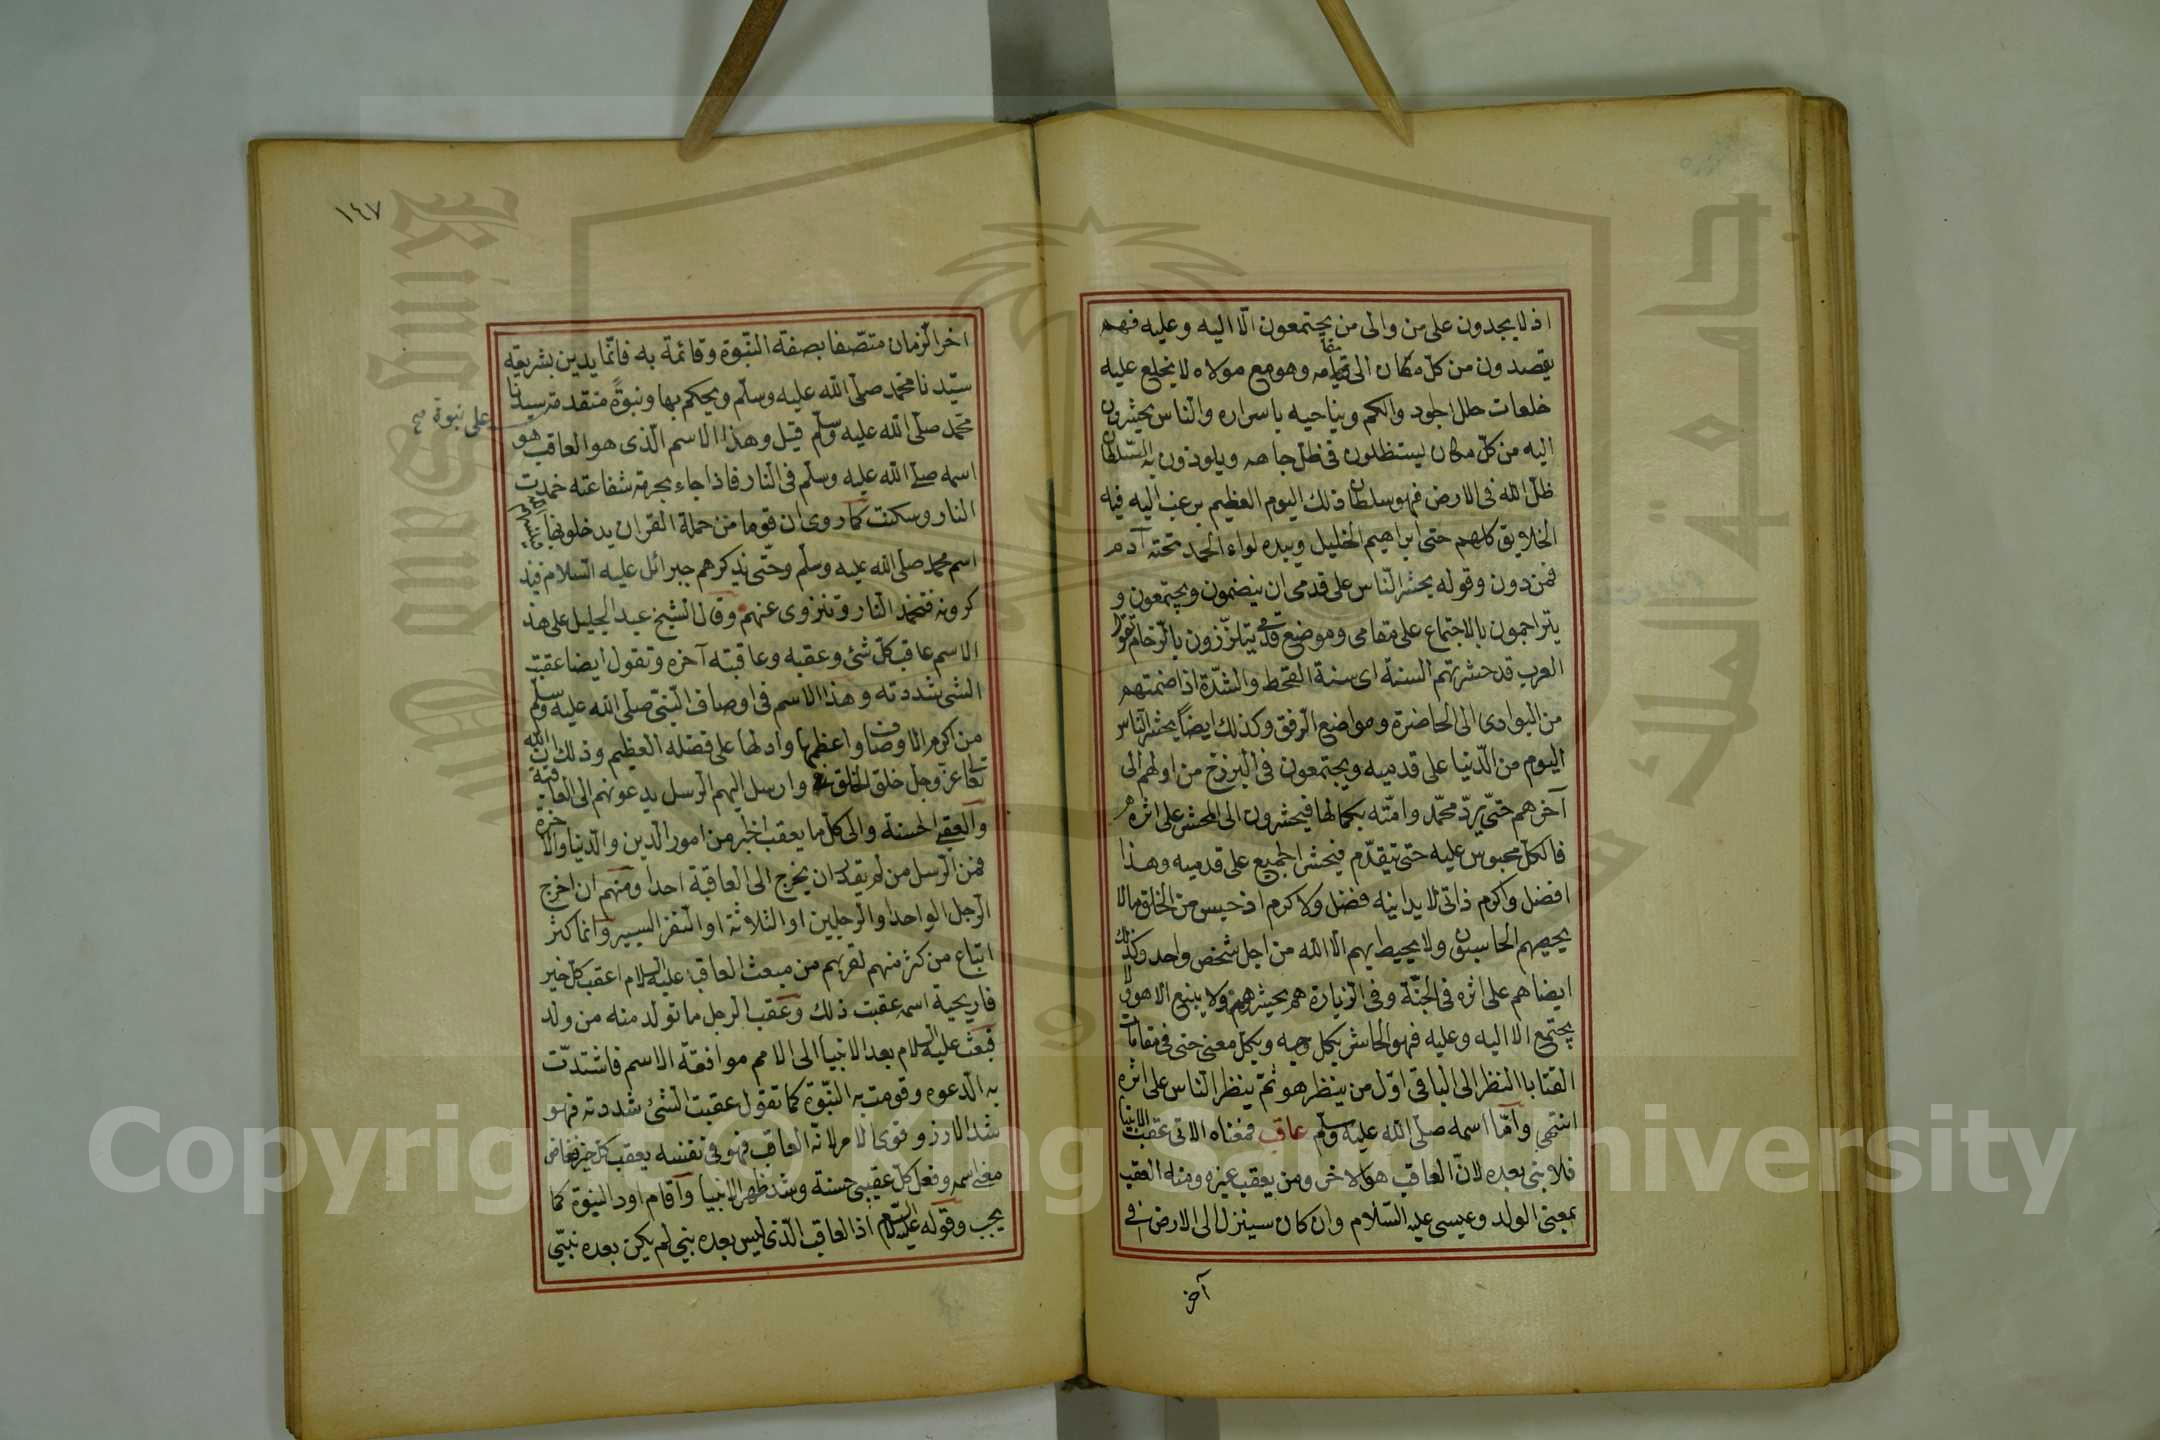 اذ لا يجدون على من والى من يجتمعون الّا اليه وعليه فهم
يقصدون من كلّ مكان الى مقامه وهو مع مولاه لا يخلع عليه
خلعات حلل اجلود والكم ويناجيه باسراره والناس يحشرون
اليه من كلّ مكان ليستظلون فى ظلّ جاهه ويلوذون به السّلطان
ظلّ الله فى الارض فهو سلطان ذلك اليوم العظيم يرغب اليه فيه
الخلايق كلهم حتى ابراهيم الخليل وبيده لواء الحمد تحته آدم
فمن دون وقوله يحشر النّاس على قدمى ان ينضمون ويجتمعون و
يتراحمون بالاجتماع على مقامى وموضع قدمى يتلزّزون بالزحام تقول
العرب قد حشرتهم السنة اى سنة القحط والشدّة اذا ضمتهم
من البوادى الى الحاضرة ومواضع الرفق وكذلك ايضاً يحشر النّاس
اليوم من الدّنيا على قدميه ويجتمعون فى البرزخ من اولهم الى
آخرهم حتّى يردّ محمّد وامّته بكمالها فيحشرون الى المحشر على اثره
فالكل محبوس عليه حتى يتقدّم فيحشر الجميع على قدميه وهذا
افضل واكرم ذاتى لا يدانيه فضل ولا كرم اذ حبس من الخلق ما لا
يحيصهم الحاسبون ولا يحيط بهم الا الله من اجل شخص واحد وكذلك
ايضا هم على اثره فى الجنّة وفى الزيارة هم يحشرهم ولا يتبع الا هو ولا
يجتمع الا اليه وعليه فهو الحاشر بكل وجه وبكل معنى حتى فى مقامات
القتابا النظر الى الباقى اوّل من ينظر هو ثمّ ينظر الناس على اثره
انتهى وامّا اسمه صلّى الله عليه وسلّم عاقب فمعناه الاتى عقب الانبيا
فلا نبى بعده لانّ العاقب هو الاخر ومن يعقب غيره ومنه العقب
بمعنى الولد وعيسى عليه السّلام وان كان سينزل الى الارض فى
آخر
١٤٧
اخر الزمان متّصفا بصفة النبّوة وقائمة به فانّما يدين بشريعة
سيّدنا محمد صلّى الله عليه وسلّم ويحكم بها ونبوةً متقدمة سيدنا
على نبوة صح
محمّد صلّى الله عليه وسلّم قيل وهذا الاسم الّذى هو العاقب هو
اسمه صلّى الله عليه وسلّم فى النار فاذا جاء بحرمة شفاعته خمدت
النار وسكنت كما روى ان قوما من حملة القران يدخلونها
اسم محمد صلّى الله عليه وسلّم وحتّى يذكرهم جبرائل عليه السّلام فيذ
كرونه فتخمد النار وتنزوى عنهم وقال الشيخ عبد الجليل على هذ
الاسم عاقب كلّ شئ وعقبه وعاقبته آخره وتقول ايضا عقبت
الشى شددته وهذا الاسم فى اوصاف النّبىّ صلّى الله عليه وسلّم
من اكرم الاوصاف واعظمها وادلها على فضله العظيم وذلك انّ الله
تعا عزّ وجل خلق الخلق وارسل اليهم الرّسل يدعونهم الى العاقبة
والعقبى الحسنة والى كلّ ما يعقب الخير من امور الدّين والدّنيا والاخرة
فمن الرّسل من لم يقدر ان يخرج الى العاقبة احدا ومنهم ان اخرج
الرّجل الواحد والرجلين او الثلاثة او النفر اليسير وانما كثر
اتباع من كثر منهم لقربهم من مبعث العاقب عليه السلام اعقب كلّ خير
فاريحية اسمه عقبت ذلك وعقب الرّجل ما تولد منه من ولد
فبعث عليه السلام بعد الانبيا الى الامم موافقة الاسم فاشتدّت
به الدّعوه وقومت به النبّوة كما تقول عقبت الشئ شددته فهو
شد الازر وقوى الامر لانّه العاقب فهو فى نفسه يعقب كل خير
معنى اسمه وفعل كلّ عقيبى حسنة وشد ظهر الانبيا واقام اود النبوة كما
يجب وقوله عليه السّلام اذ العاقب الّذى ليس بعده نبى لم يكن بعده نبىّ
Copyright © King Saud University